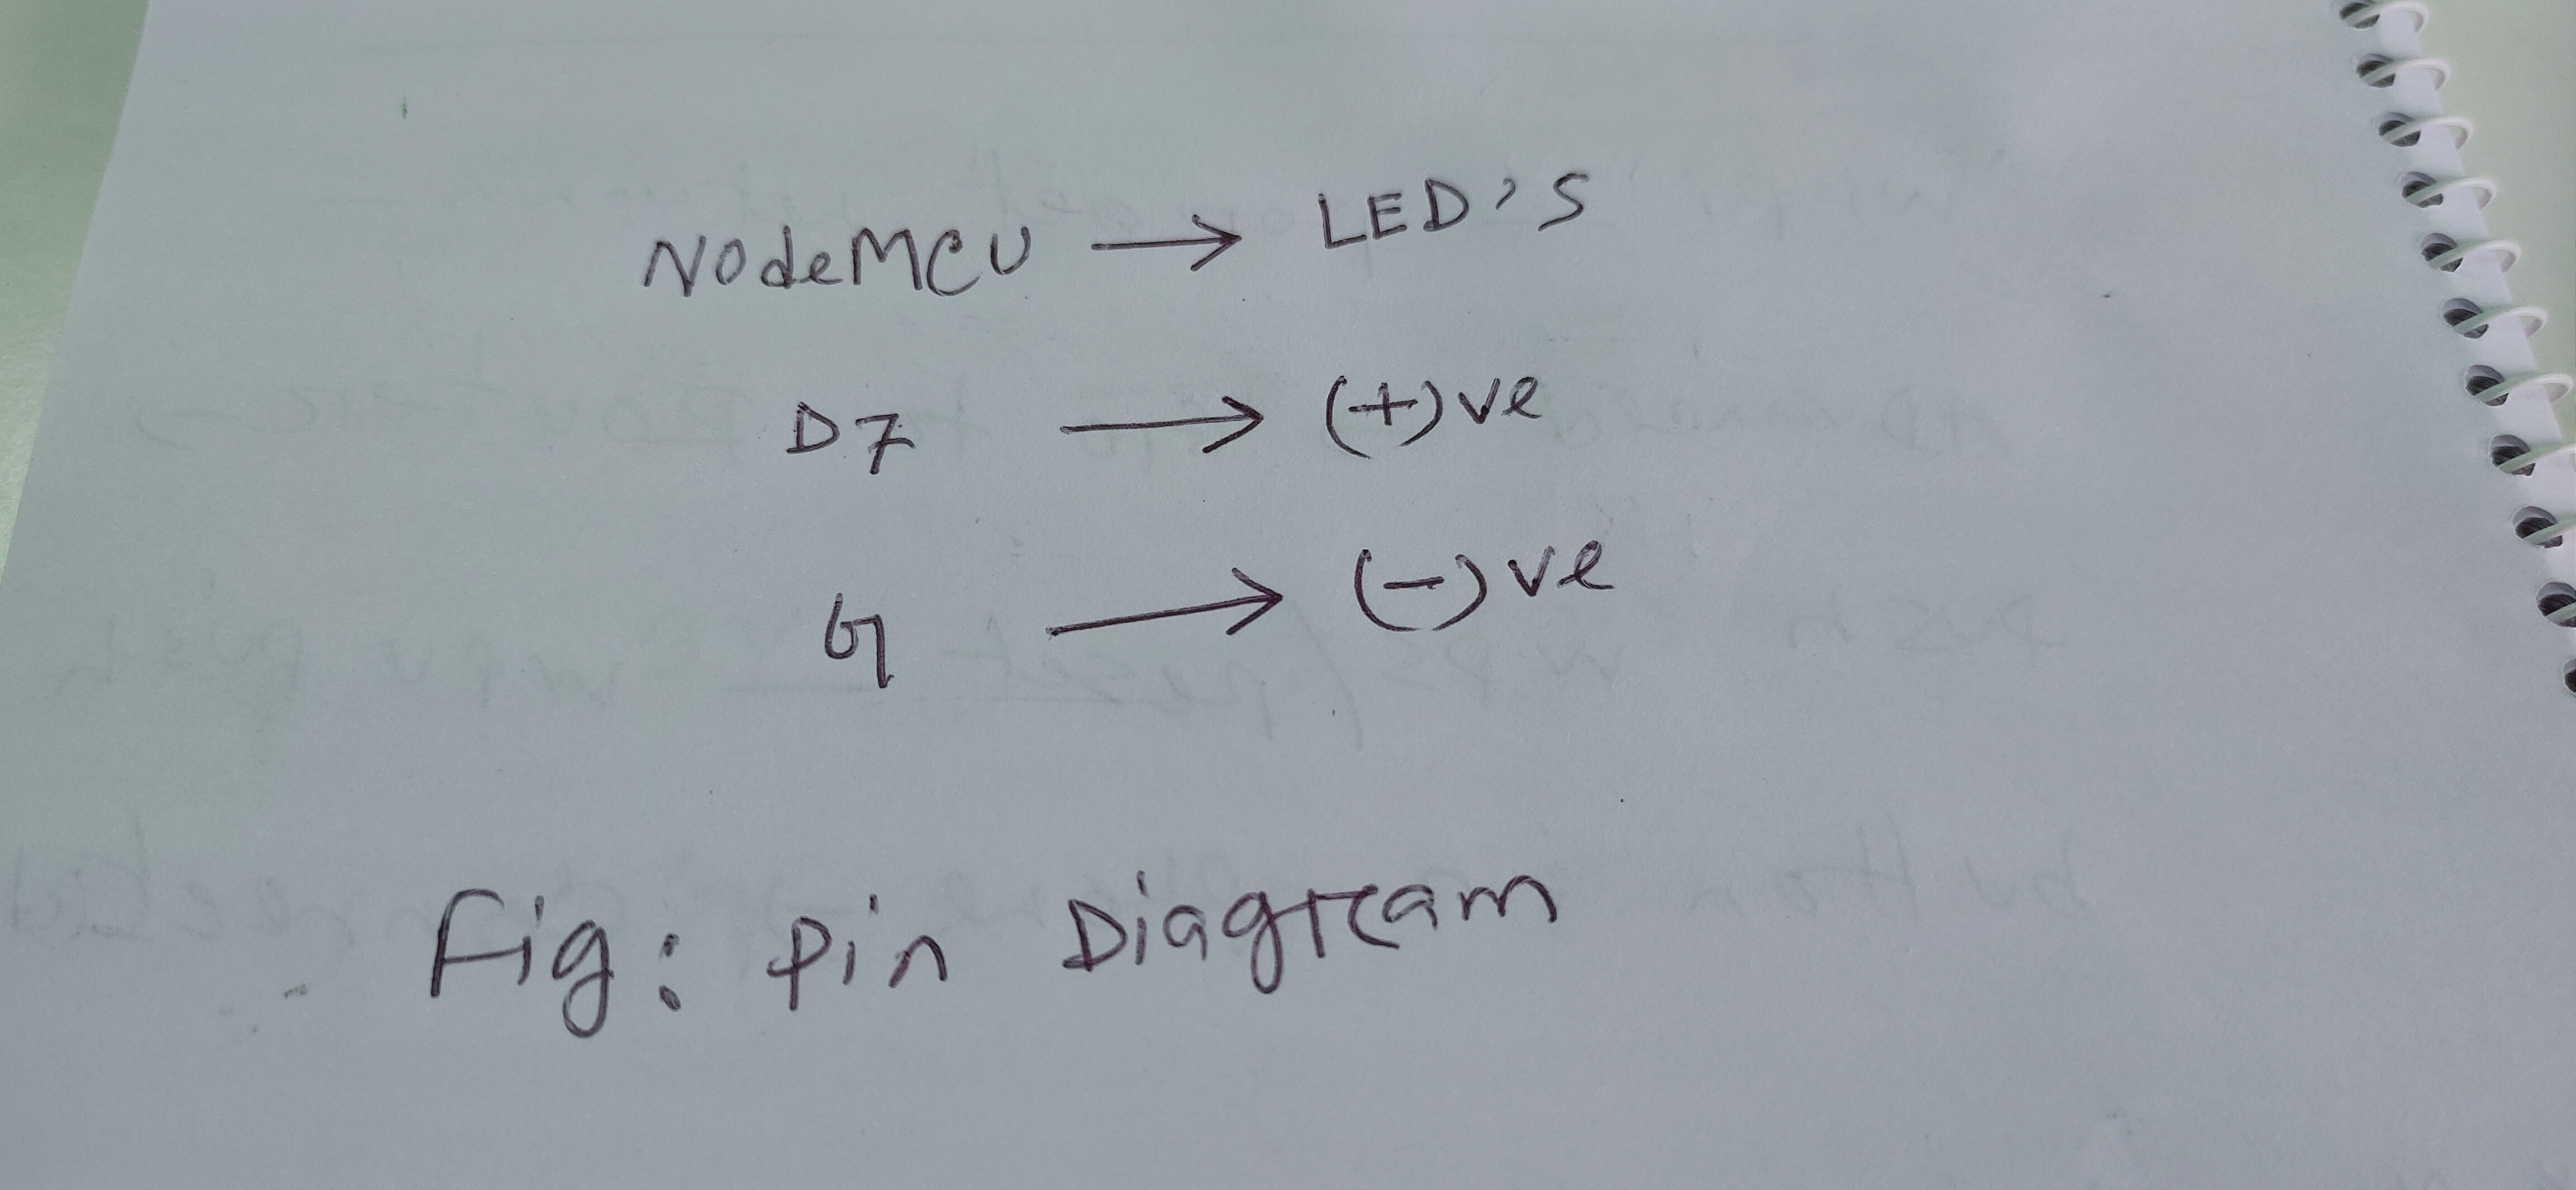 NodeMCU → LED'S
D7 → (+)ve
G → (-)ve
Fig: Pin Diagram